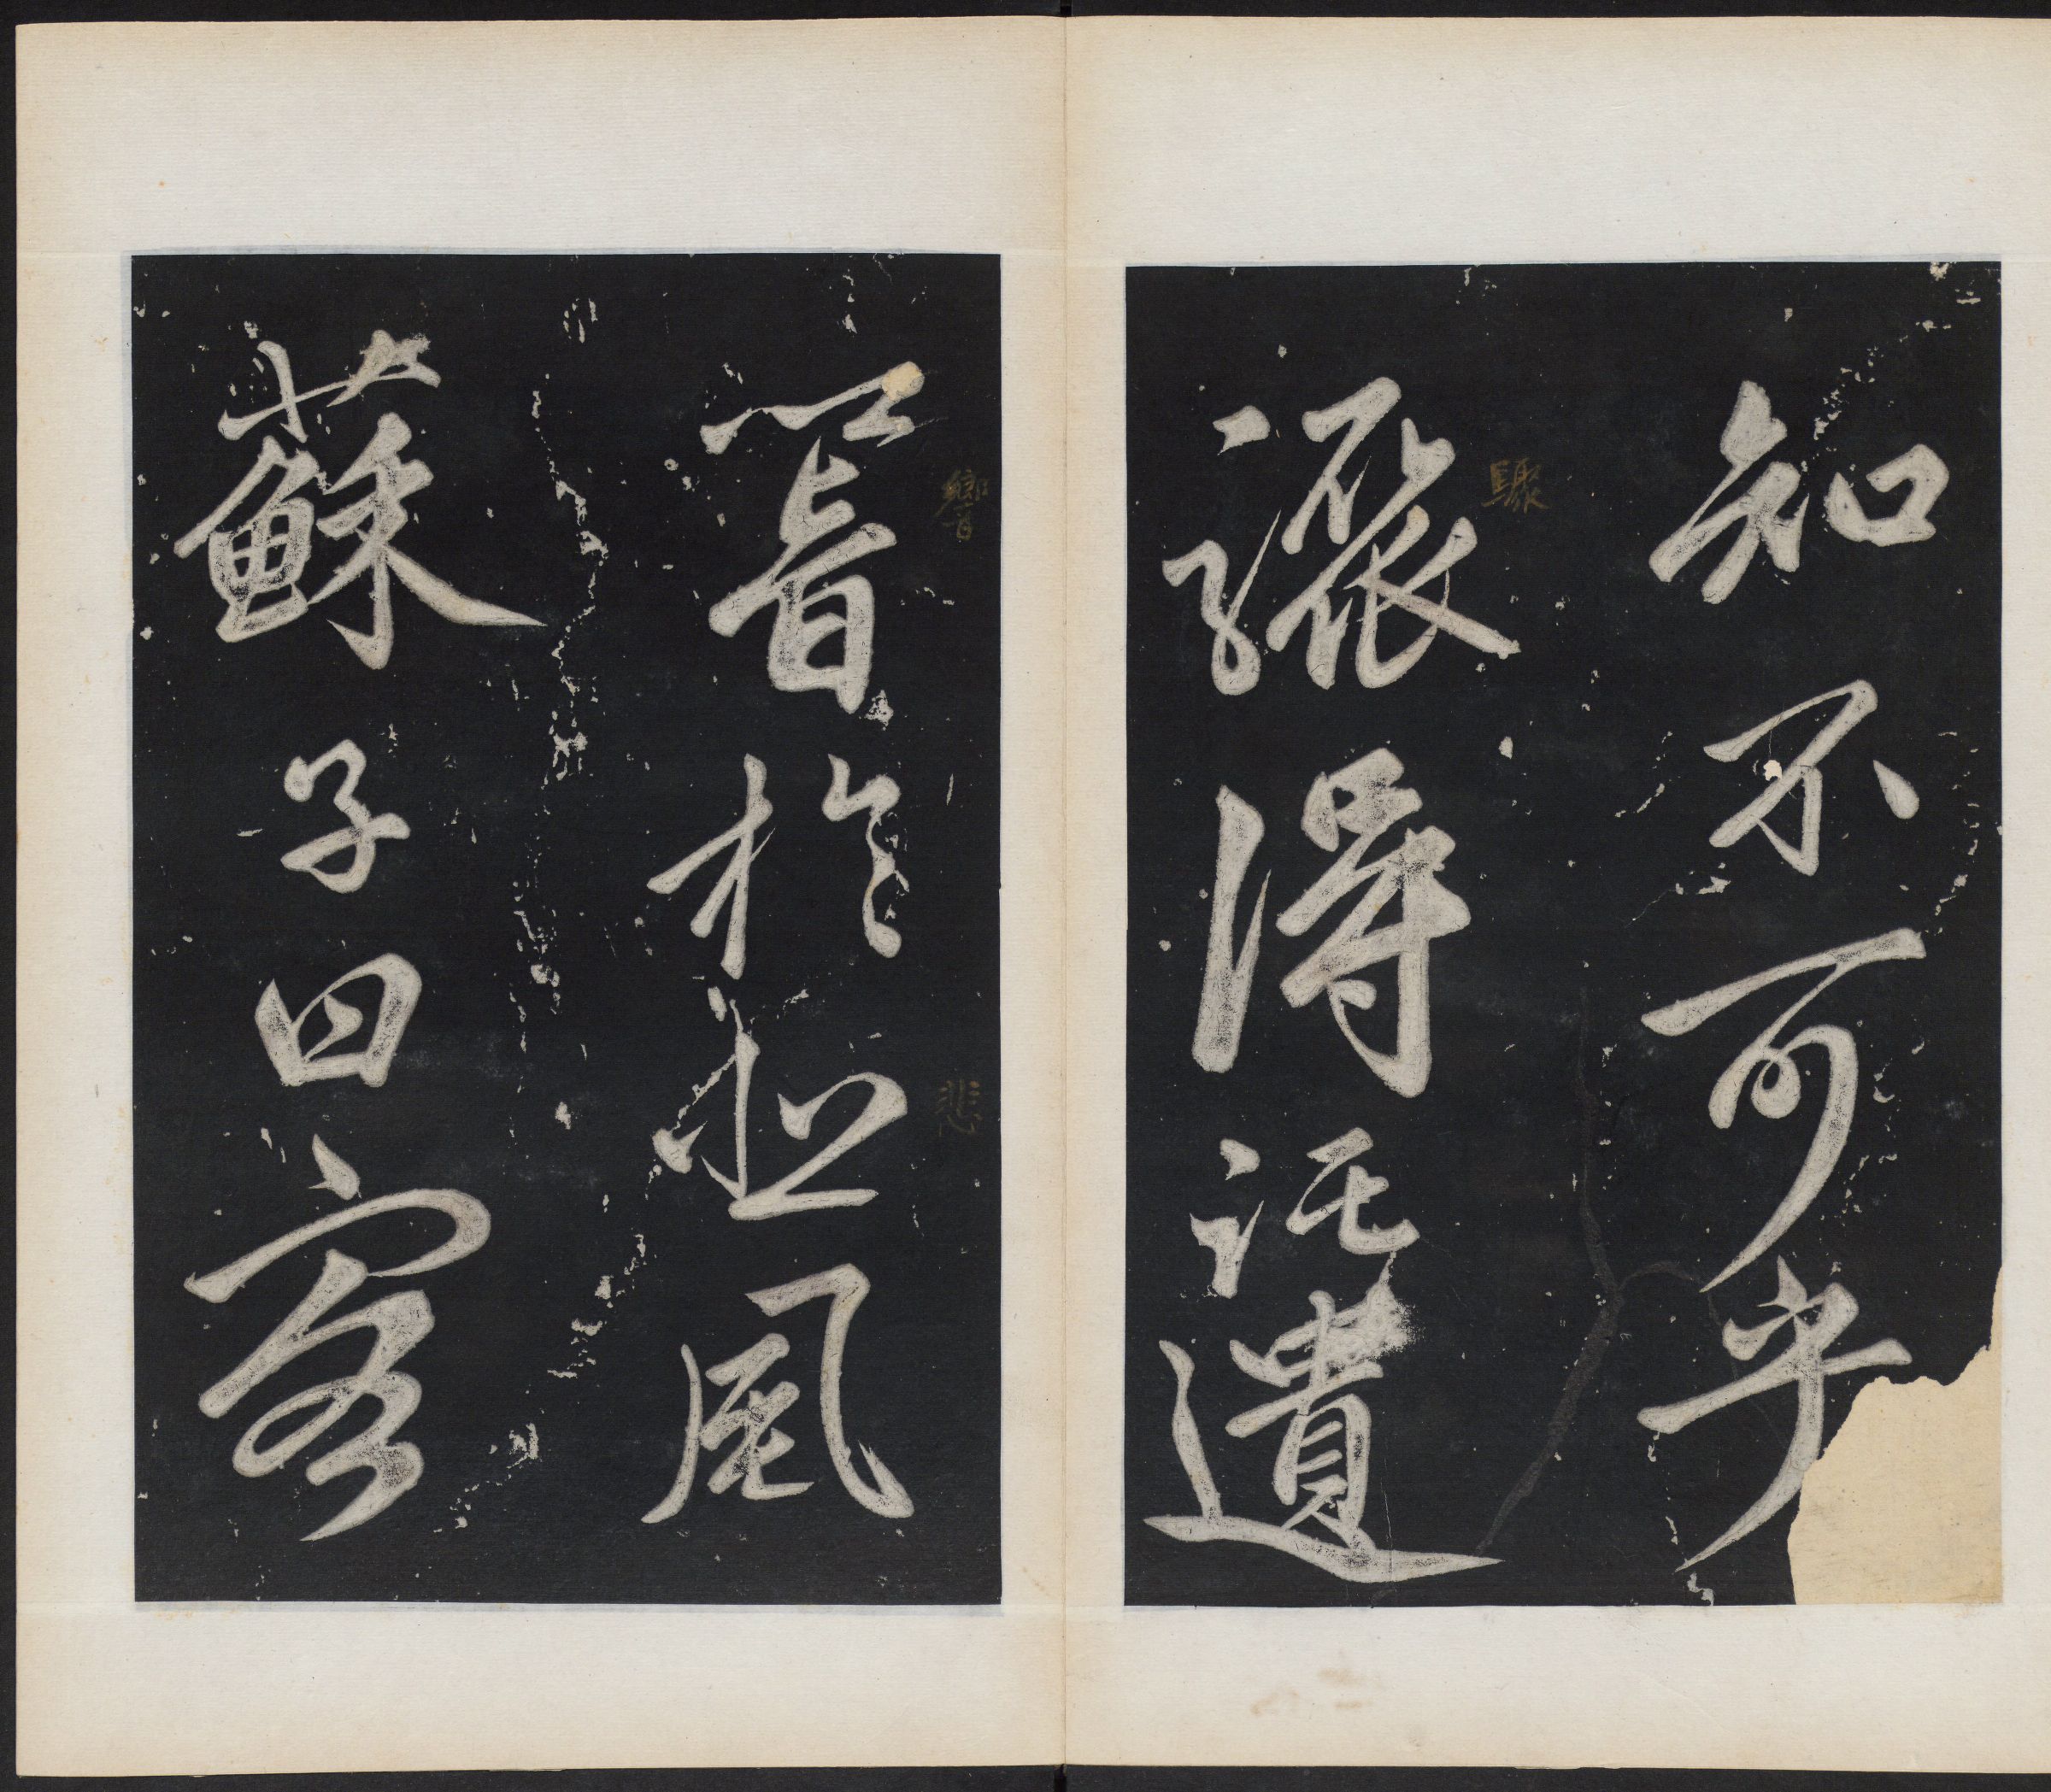 知不可乎
驟
驟得託遺
響
響於悲
悲風
蘇子曰客